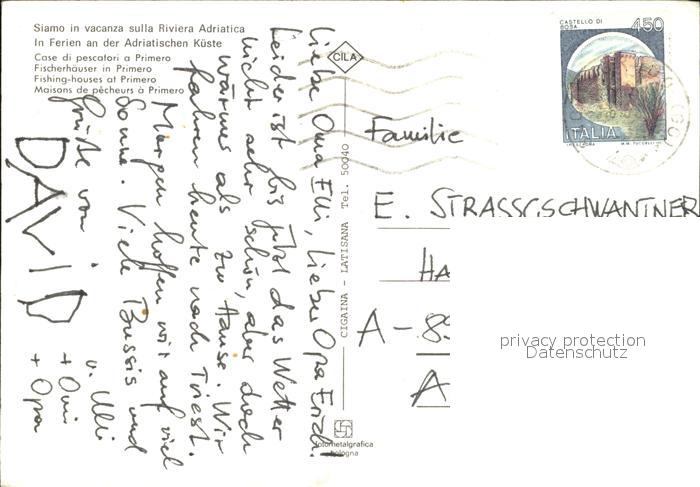 Siamo in vacanza sulla Riviera Adriatica
In Ferien an der Adriatischen Küste
Case di pescatori a Primero
Fischerhäuser in Primero
Fishing-houses at Primero
Maisons de pêcheurs à Primero
Liebe Oma Elli, Lieber Opa Erich!
Leider ist bis jetzt das Wetter
nicht sehr schön, aber doch
wärmer als zu Hause. Wir
fahren heute nach Triest.
Morgen hoffen wir auf viel
Sonne. Viele Bussis und
Grüße von
DAVID
u. Ulli
+ Omi
+ Opa
CILA
CIGAINA - LATISANA Tel. 50040
fotometalgrafica
bologna
CASTELLO DI
BOSA
450
ITALIA
Familie
E. STRASSGSCHWANTNER
HA
A-8
A
privacy protection
Datenschutz